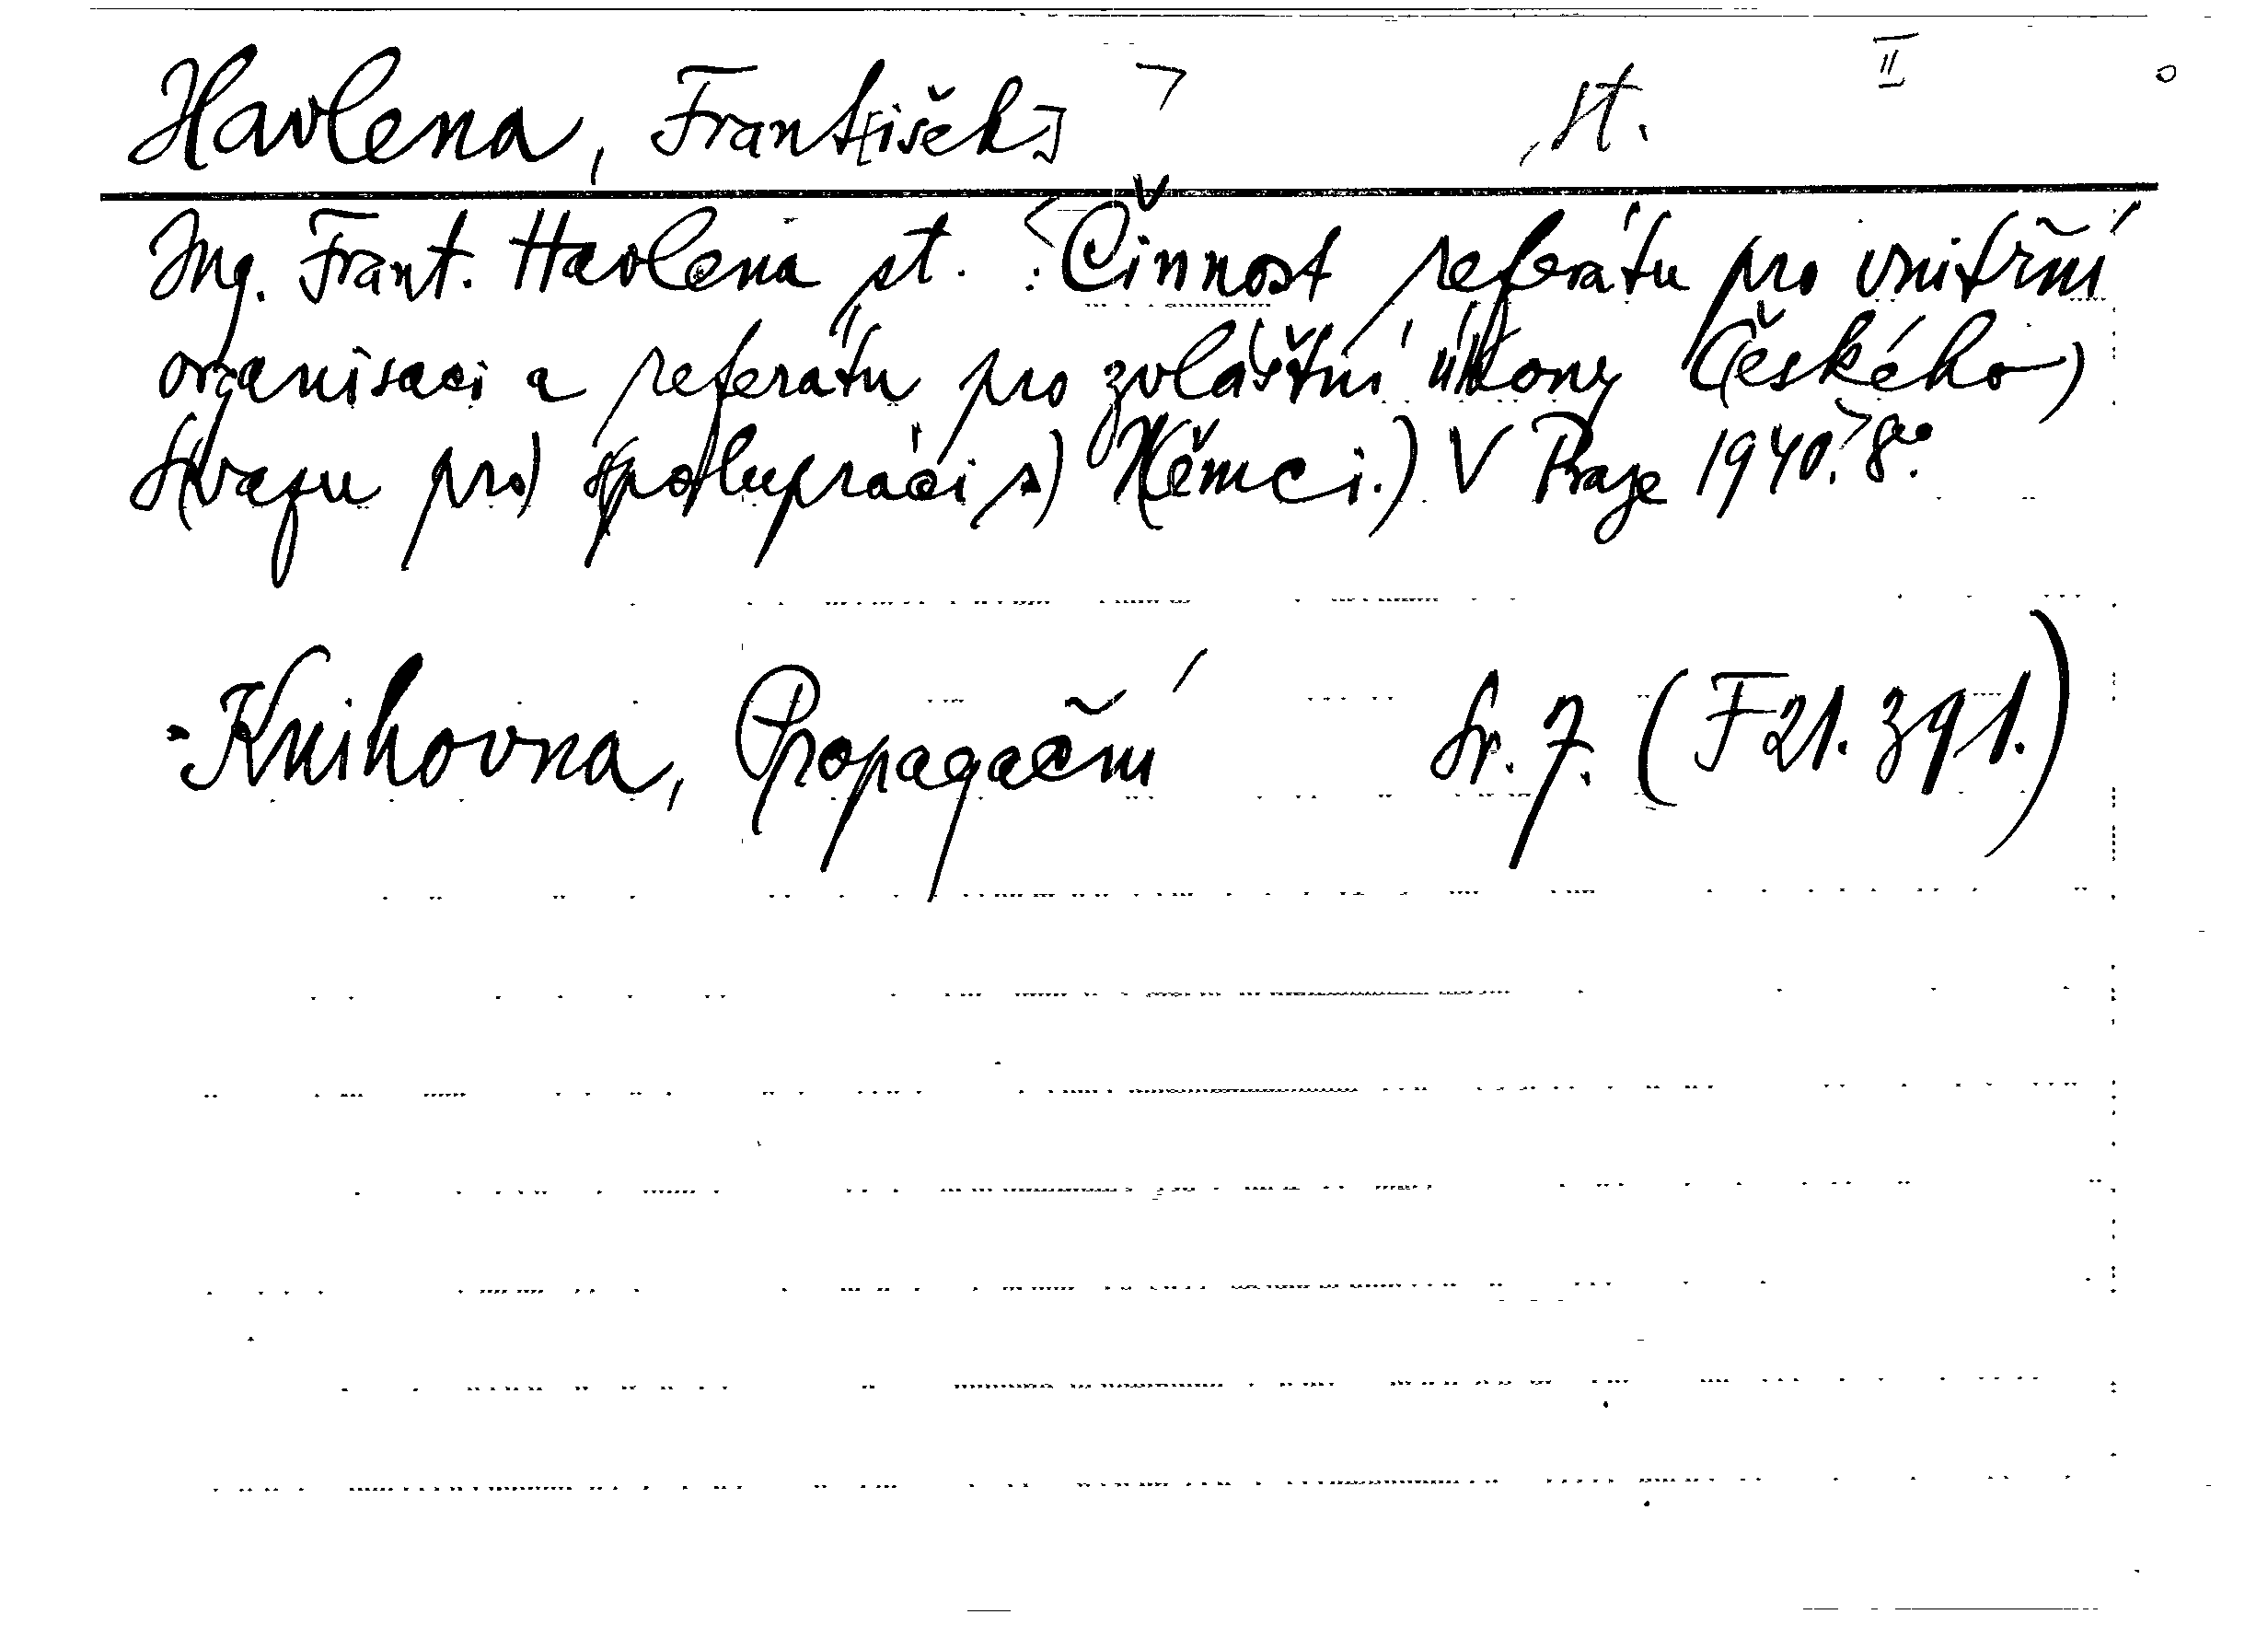 Havlena, Frant[išek] , st. II
Ing. Frant. Havlena st. : Činnost referátu pro vnitřní
organisaci a referátu pro zvláštní úkony (Českého)
S(vazu pro) spolupráci s) N(ěmci.) V Praze 1940. 8°.
- Knihovna, Propagační Sv. 7. (F 21.391.)